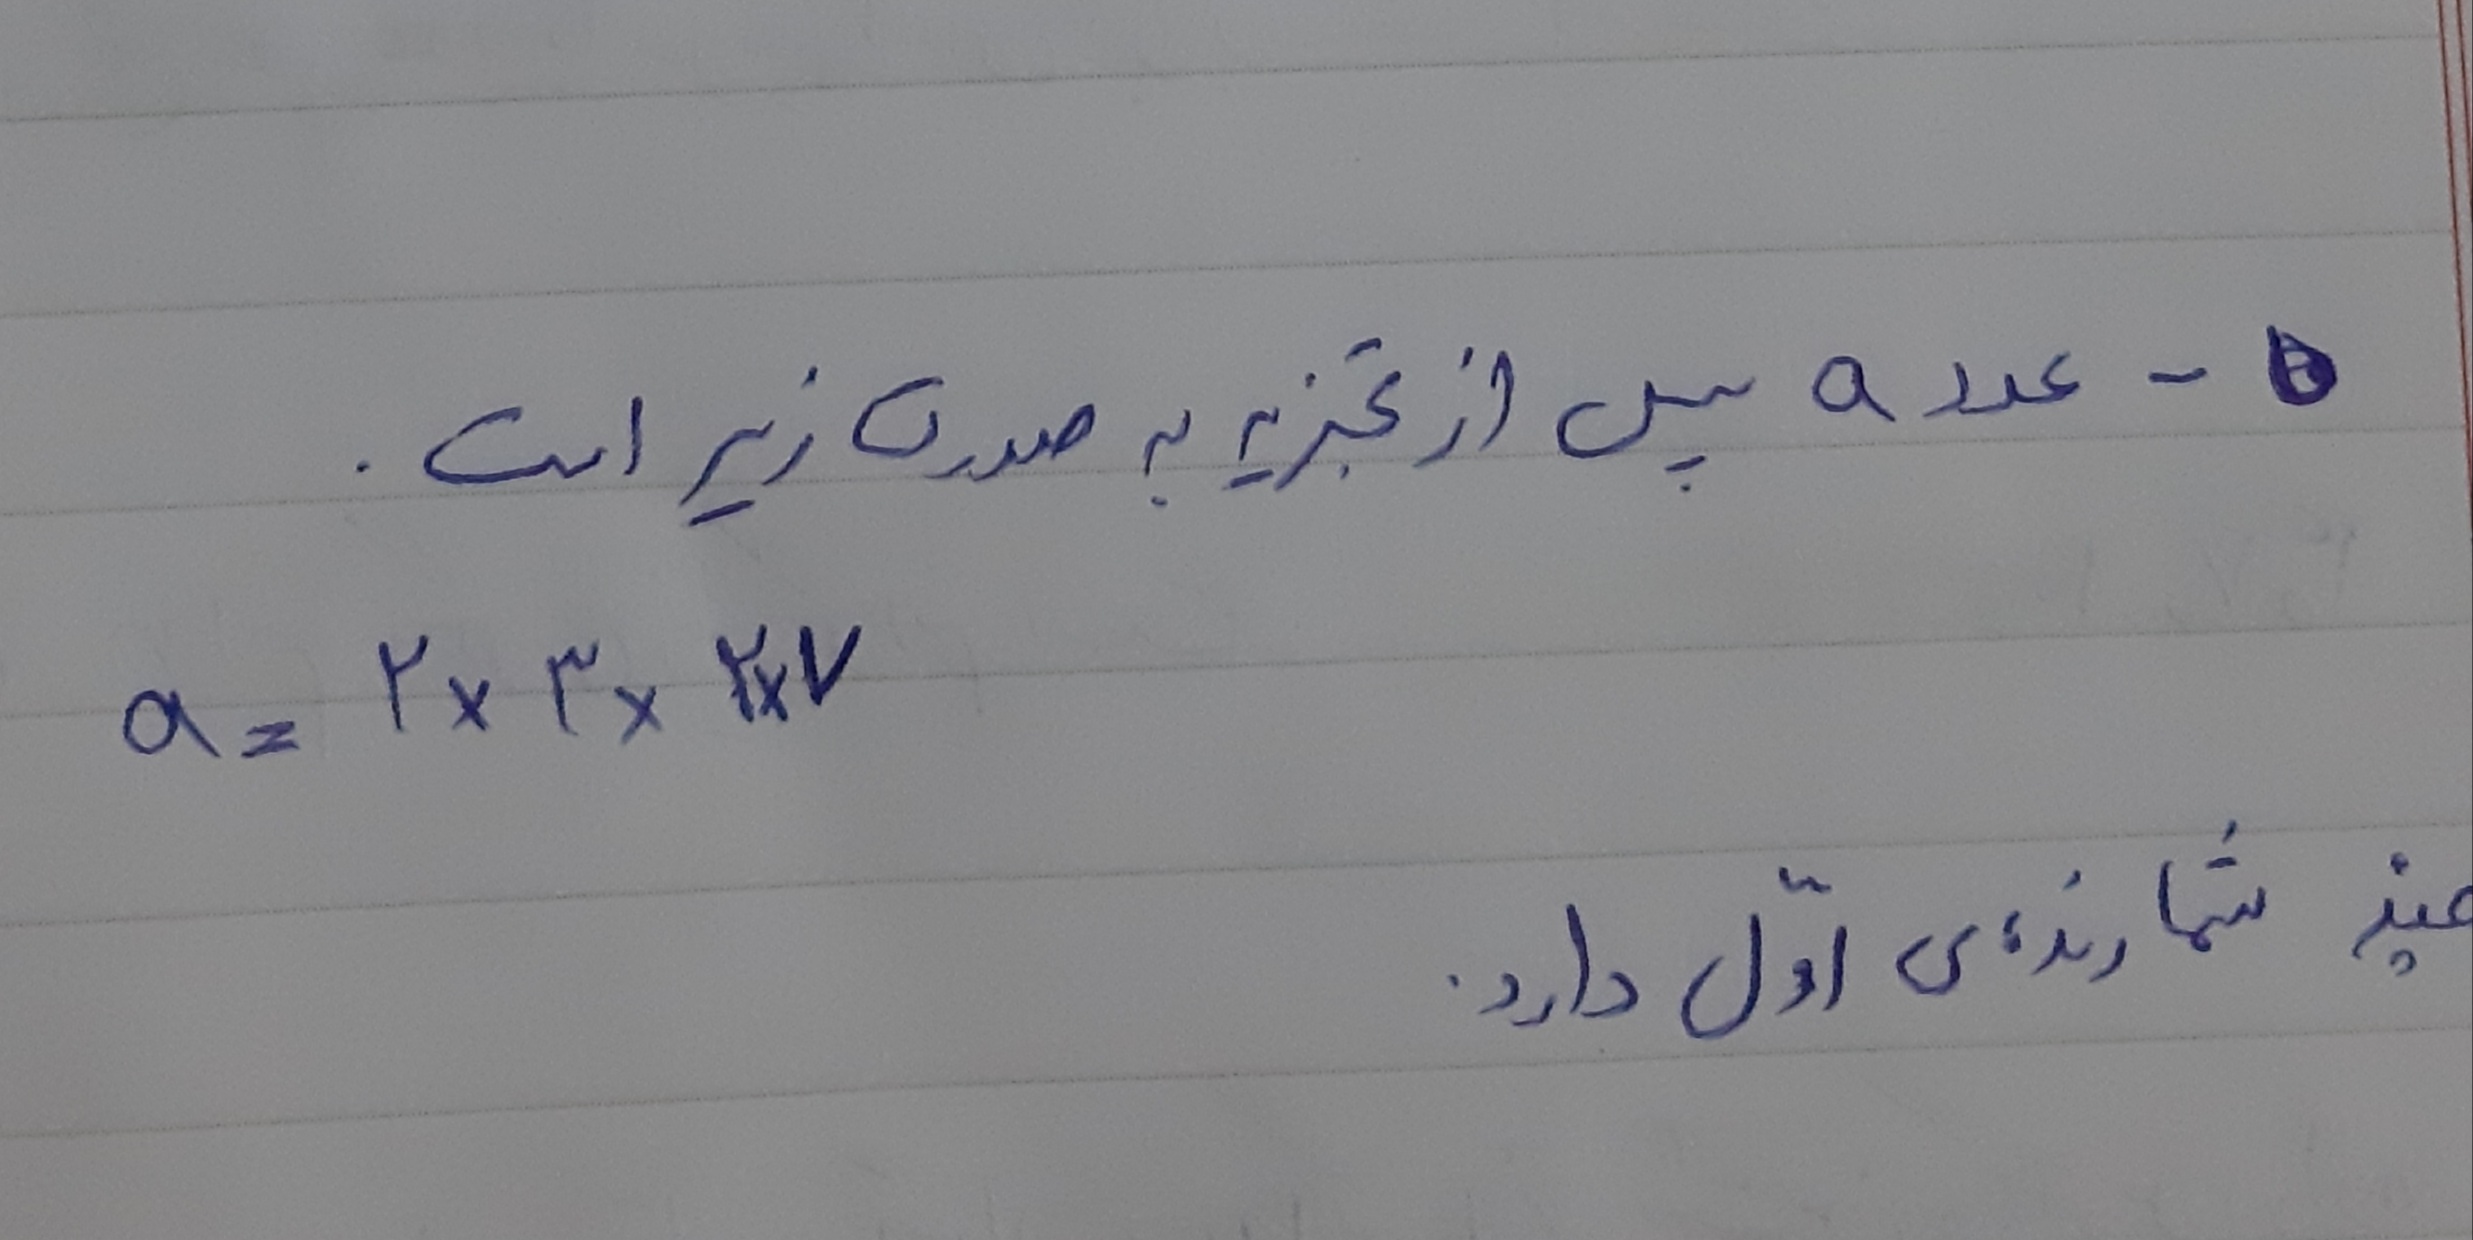 ۵- عدد a پس از تجزیه به صورت زیر است.
a = ۲ × ۳ × ۲ × ۷
چند شمارنده‌ی اوّل دارد.